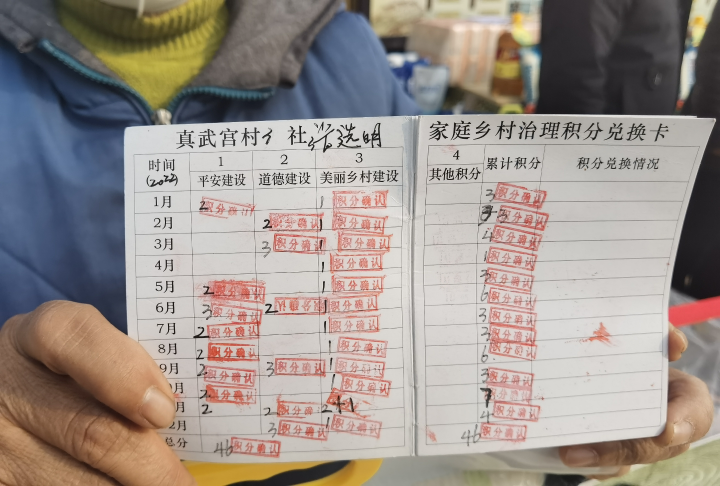 真武宫村 社 选明
家庭乡村治理积分兑换卡
时间 (2022) 1 平安建设 2 道德建设 3 美丽乡村建设 4 其他积分 累计积分 积分兑换情况
1月 2 积分确认 1 积分确认 3 积分确认
2月 2 积分确认 1 积分确认 3 积分确认
3月 3 积分确认 1 积分确认 4 积分确认
4月 1 积分确认 1 积分确认
5月 2 积分确认 1 积分确认 3 积分确认
6月 3 积分确认 2 积分确认 1 积分确认 6 积分确认
7月 2 积分确认 1 积分确认 3 积分确认
8月 2 积分确认 1 积分确认 3 积分确认
9月 2 积分确认 3 积分确认 1 积分确认 6
月 2 积分确认 1 积分确认 3 积分确认
月 2 2 积分确认 2 7 积分确认
2月 3 积分确认 1 积分确认 4 积分确认
总分 46 积分确认 46 积分确认